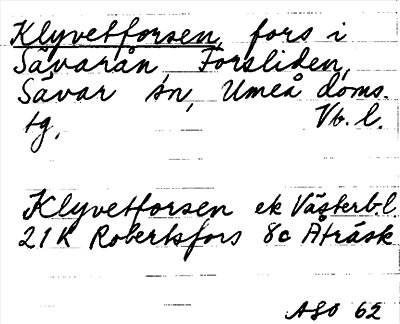 Klyvetforsen, fors i
Sävarån, Forsliden,
Sävar sn, Umeå doms.
tg, Vb. l.
Klyvetforsen ek Västerb.l.
21K Robertsfors 8c Åträsk
ASO 62